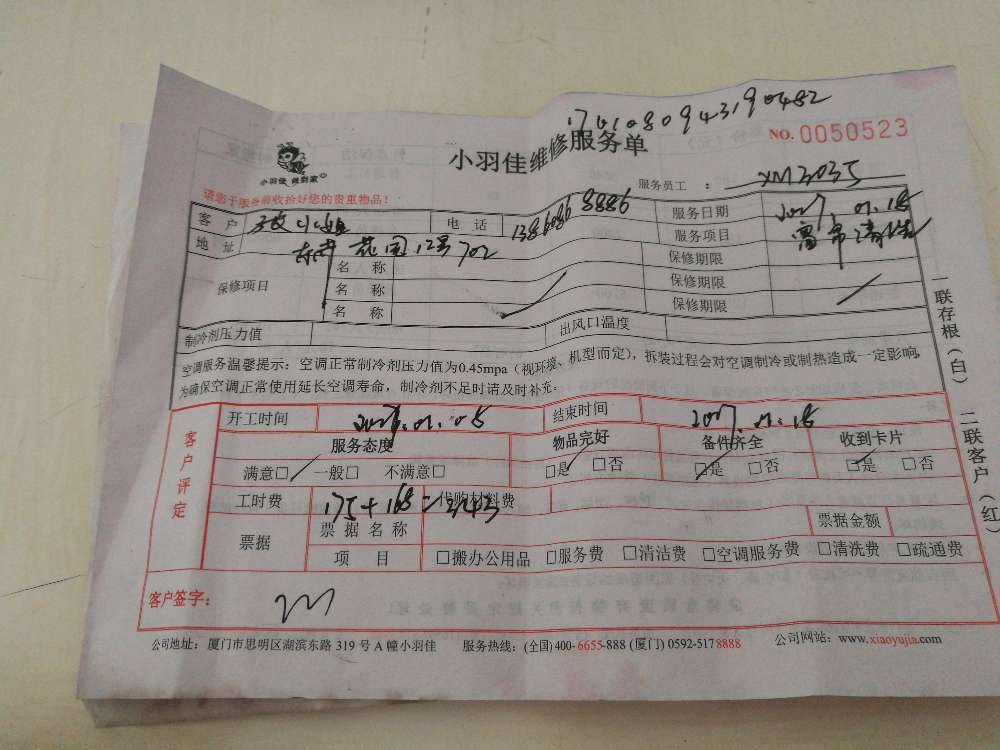 170108094319 0482
小羽佳维修服务单
NO. 0050523
小羽佳 做到家
服务员工 ： XM3035
请您于服务前收拾好您的贵重物品！
客户 小姐 电话 13860868886 服务日期 2017.01.18
地址 花园12号702 服务项目
保修项目 名称 保修期限
名称 保修期限
名称 保修期限
制冷剂压力值 出风口温度
空调服务温馨提示：空调正常制冷剂压力值为0.45mpa（视环境、机型而定），拆装过程会对空调制冷或制热造成一定影响，
为确保空调正常使用延长空调寿命，制冷剂不足时请及时补充。
一联存根（白） 二联客户（红）
客户评定
开工时间 结束时间 2017.01.18
服务态度 物品完好 备件齐全 收到卡片
满意□ 一般□ 不满意□ □是 □否 □是 □否 □是 □否
工时费 175+168=343 代购材料费
票据 票据名称 票据金额
项目 □搬办公用品 □服务费 □清洁费 □空调服务费 □清洗费 □疏通费
客户签字：
公司地址：厦门市思明区湖滨东路 319 号 A 幢小羽佳 服务热线：(全国) 400-6655-888 (厦门) 0592-517 8888 公司网站：www.xiaoyujia.com